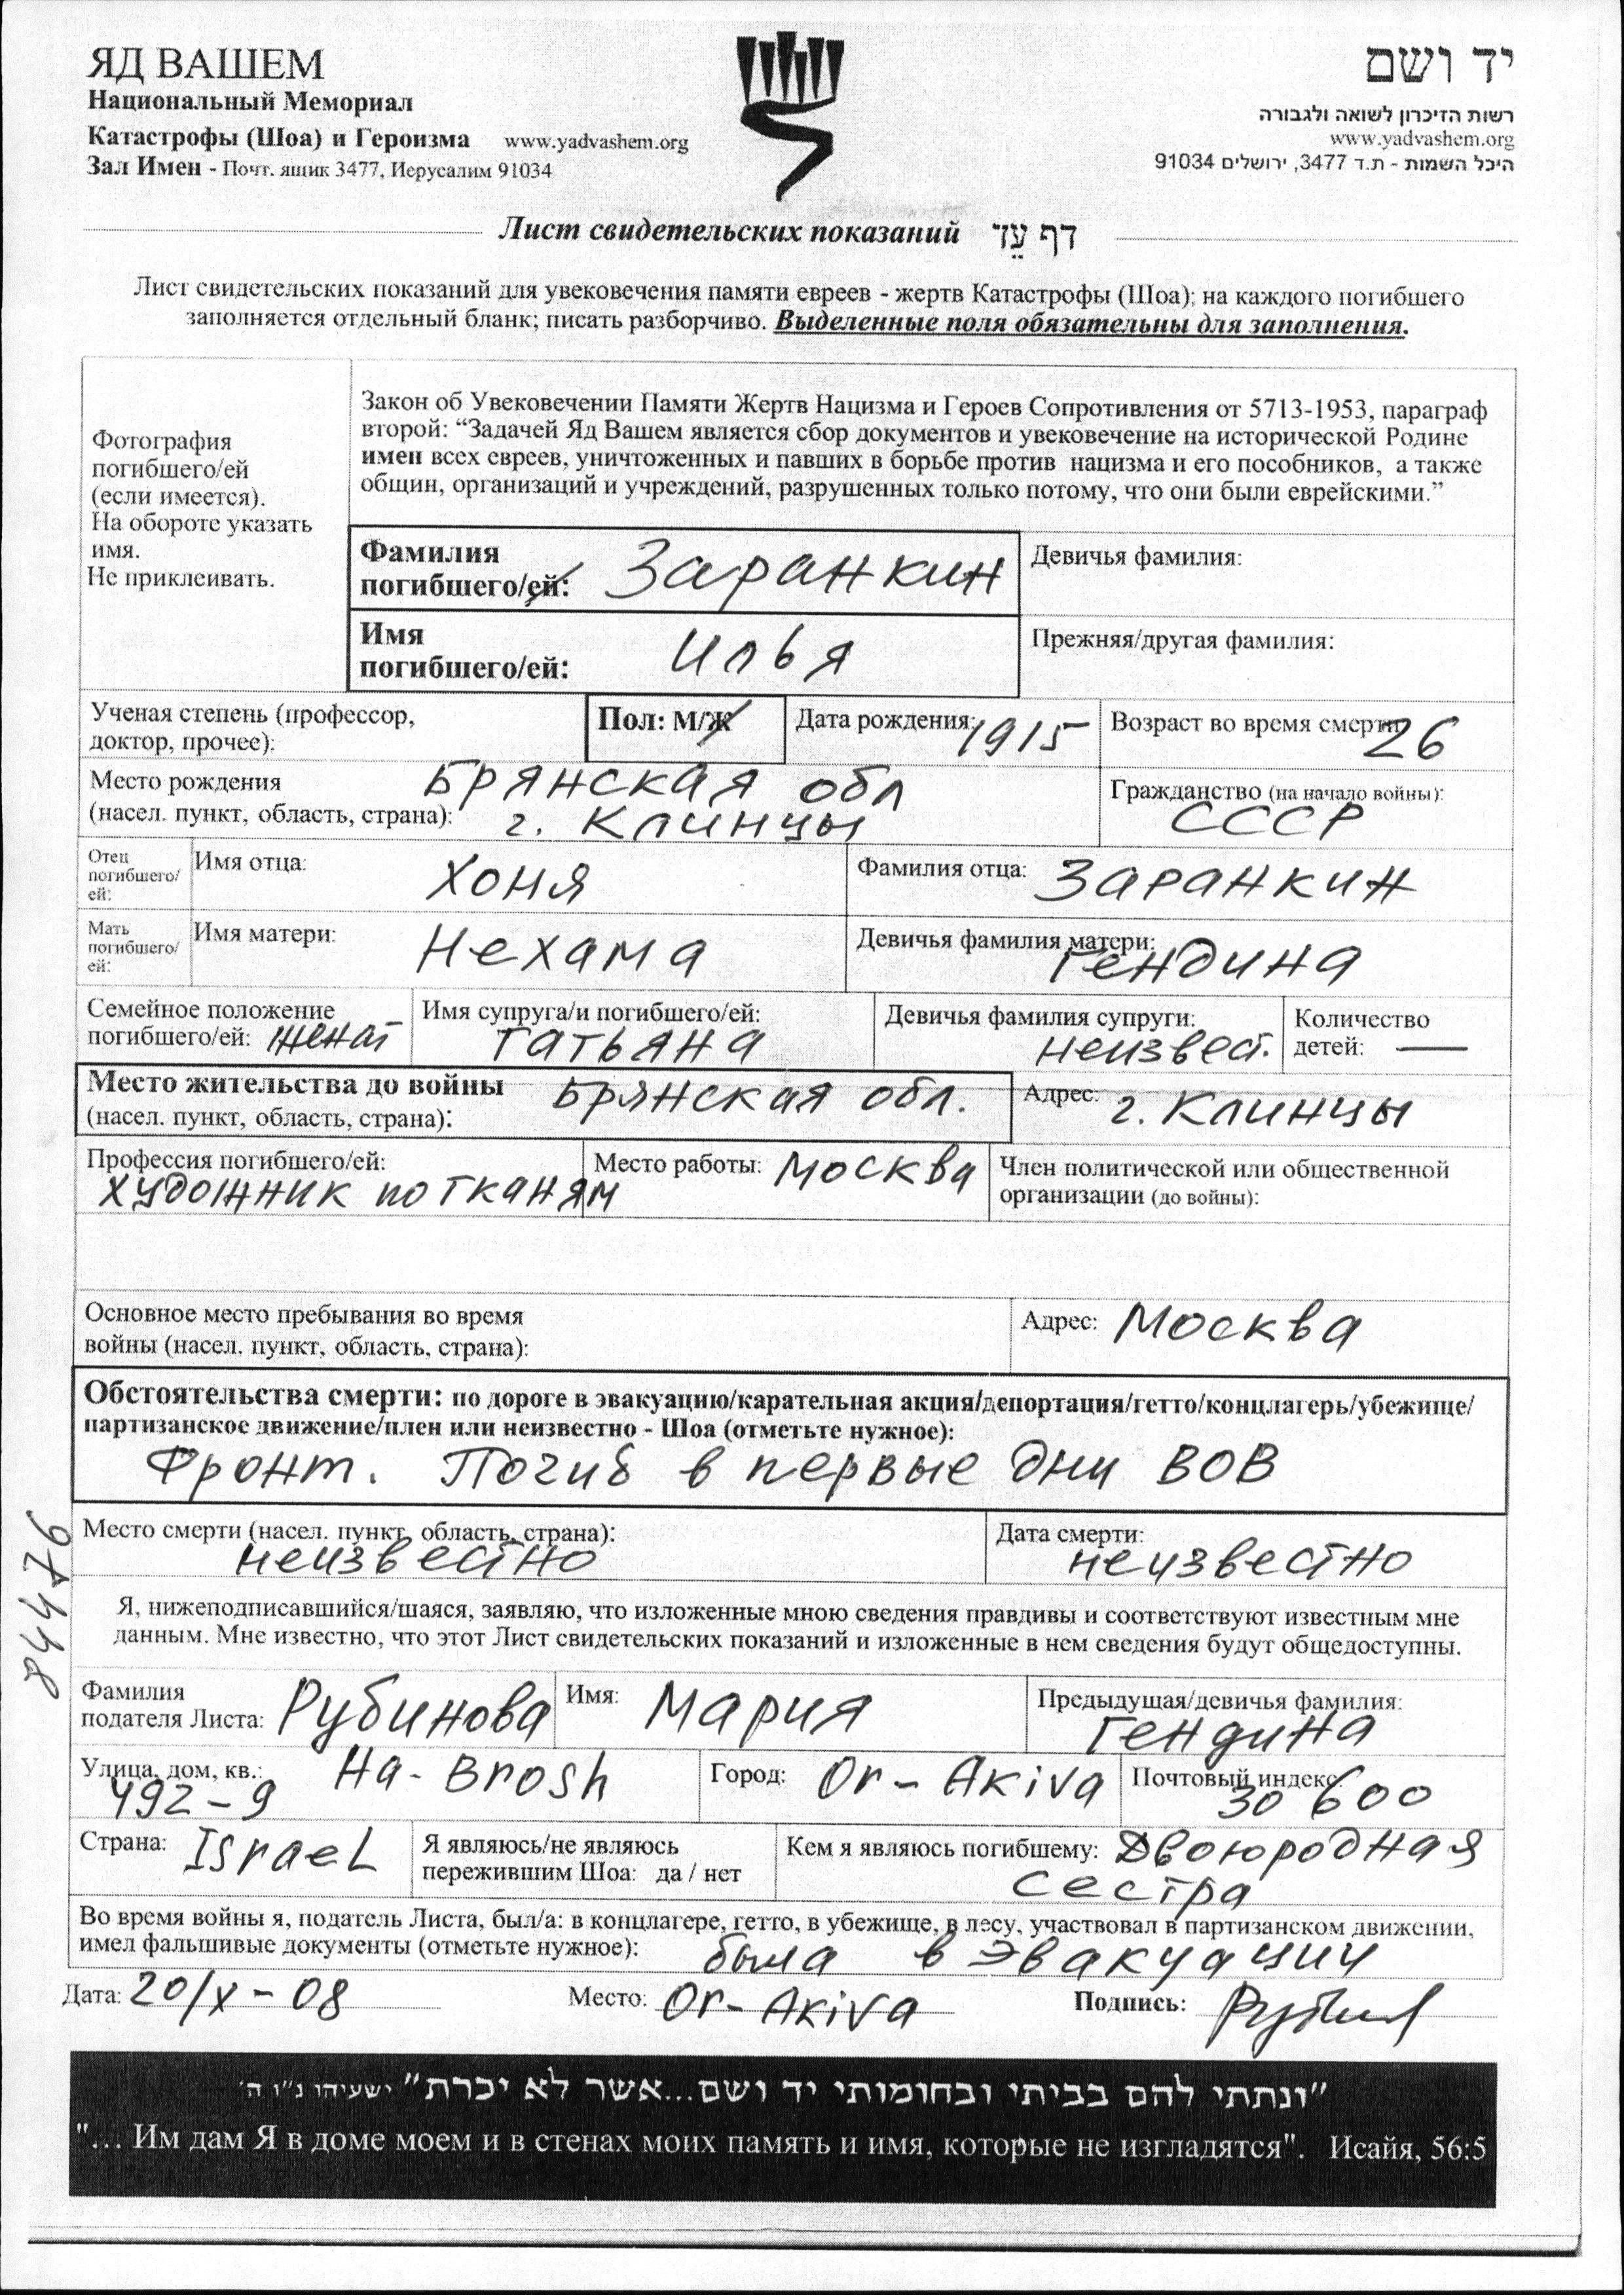 ЯД ВАШЕМ
Национальный Мемориал
Катастрофы (Шоа) и Героизма www.yadvashem.org
Зал Имен - Почт. ящик 3477, Иерусалим 91034
יד ושם
רשות הזיכרון לשואה ולגבורה
www.yadvashem.org
היכל השמות - ת.ד 3477, ירושלים 91034
Лист свидетельских показаний דף עֵד
Лист свидетельских показаний для увековечения памяти евреев - жертв Катастрофы (Шоа); на каждого погибшего
заполняется отдельный бланк; писать разборчиво. Выделенные поля обязательны для заполнения.
Фотография
погибшего/ей
(если имеется).
На обороте указать
имя.
Не приклеивать.
Закон об Увековечении Памяти Жертв Нацизма и Героев Сопротивления от 5713-1953, параграф
второй: “Задачей Яд Вашем является сбор документов и увековечение на исторической Родине
имен всех евреев, уничтоженных и павших в борьбе против нацизма и его пособников, а также
общин, организаций и учреждений, разрушенных только потому, что они были еврейскими.”
Фамилия
погибшего/ей: Заранкин
Девичья фамилия:
Имя
погибшего/ей: Илья
Прежняя/другая фамилия:
Ученая степень (профессор,
доктор, прочее):
Пол: М/Ж
Дата рождения: 1915
Возраст во время смерти: 26
Место рождения
(насел. пункт, область, страна):
Брянская обл
г. Клинцы
Гражданство (на начало войны):
СССР
Отец
погибшего/
ей:
Имя отца: Хоня
Фамилия отца: Заранкин
Мать
погибшего/
ей:
Имя матери: Нехама
Девичья фамилия матери:
Гендина
Семейное положение
погибшего/ей: женат
Имя супруга/и погибшего/ей:
Татьяна
Девичья фамилия супруги:
неизвест.
Количество
детей: —
Место жительства до войны Брянская обл.
(насел. пункт, область, страна):
Адрес: г. Клинцы
Профессия погибшего/ей:
художник по тканям
Место работы: Москва
Член политической или общественной
организации (до войны):
Основное место пребывания во время
войны (насел. пункт, область, страна):
Адрес: Москва
Обстоятельства смерти: по дороге в эвакуацию/карательная акция/депортация/гетто/концлагерь/убежище/
партизанское движение/плен или неизвестно - Шоа (отметьте нужное):
Фронт. Погиб в первые дни ВОВ
Место смерти (насел. пункт, область, страна):
неизвестно
Дата смерти:
неизвестно
84476
Я, нижеподписавшийся/шаяся, заявляю, что изложенные мною сведения правдивы и соответствуют известным мне
данным. Мне известно, что этот Лист свидетельских показаний и изложенные в нем сведения будут общедоступны.
Фамилия
подателя Листа: Рубинова
Имя: Мария
Предыдущая/девичья фамилия:
Гендина
Улица, дом, кв.: Ha-Brosh
492-9
Город: Or-Akiva
Почтовый индекс:
30 600
Страна: Israel
Я являюсь/не являюсь
пережившим Шоа: да / нет
Кем я являюсь погибшему: Двоюродная
сестра
Во время войны я, податель Листа, был/а: в концлагере, гетто, в убежище, в лесу, участвовал в партизанском движении,
имел фальшивые документы (отметьте нужное): была в эвакуации
Дата: 20/X-08 Место: Or-Akiva Подпись:
"ונתתי להם בביתי ובחומותי יד ושם...אשר לא יכרת" ישעיהו נ"ו ה'
"... Им дам Я в доме моем и в стенах моих память и имя, которые не изгладятся". Исайя, 56:5